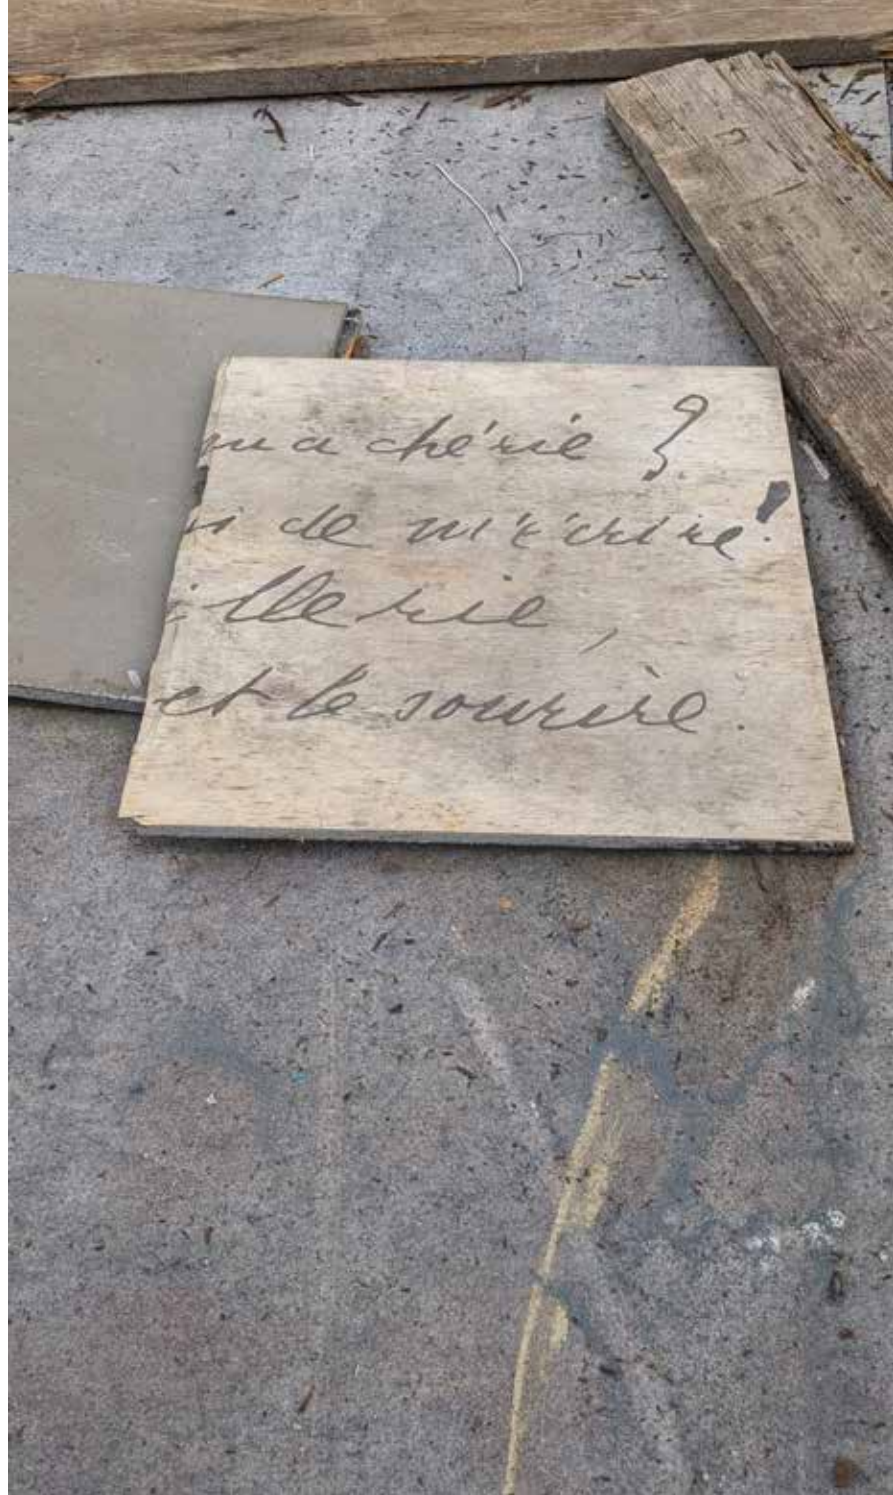 ma chérie ?
si de m'écrire !
illerie,
et le sourire